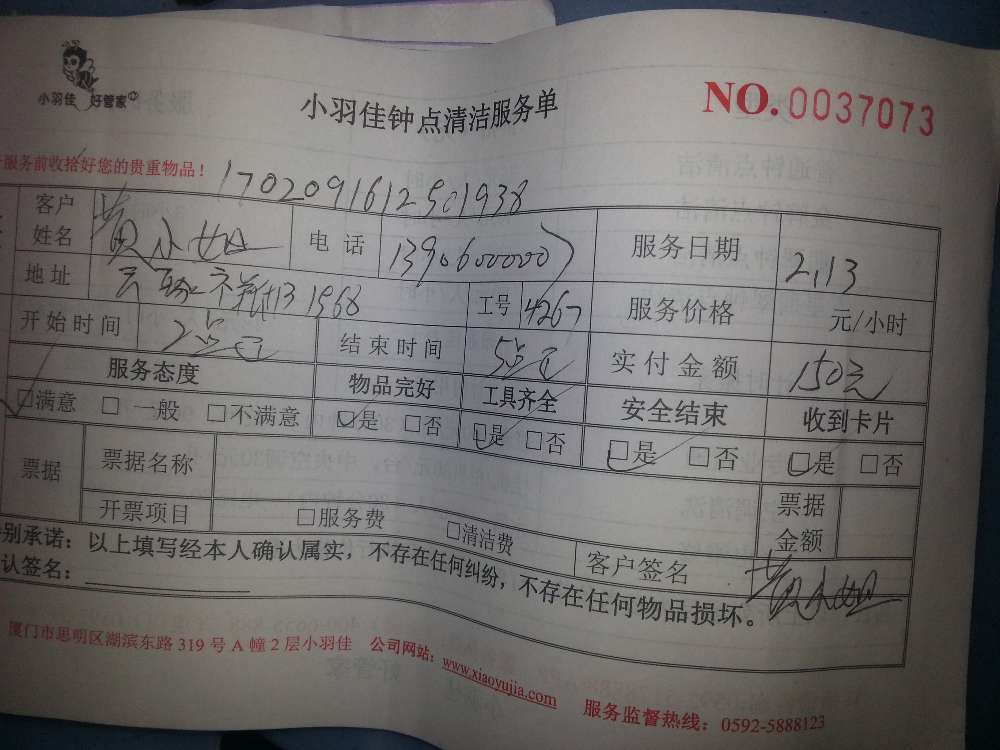 小羽佳 好管家
小羽佳钟点清洁服务单
NO.0037073
服务前收拾好您的贵重物品!
客户姓名 小姐 电话 服务日期 2.13
地址 1568 工号 4267 服务价格 元/小时
开始时间 2点 结束时间 5点 实付金额 150元
服务态度 物品完好 工具齐全 安全结束 收到卡片
□满意 □一般 □不满意 □是 □否 □是 □否 □是 □否 □是 □否
票据 票据名称 票据金额
开票项目 □服务费 □清洁费
别承诺:以上填写经本人确认属实,不存在任何纠纷,不存在任何物品损坏。
认签名: 客户签名 小姐
厦门市思明区湖滨东路319号A幢2层小羽佳 公司网站:www.xiaoyujia.com 服务监督热线:0592-5888123